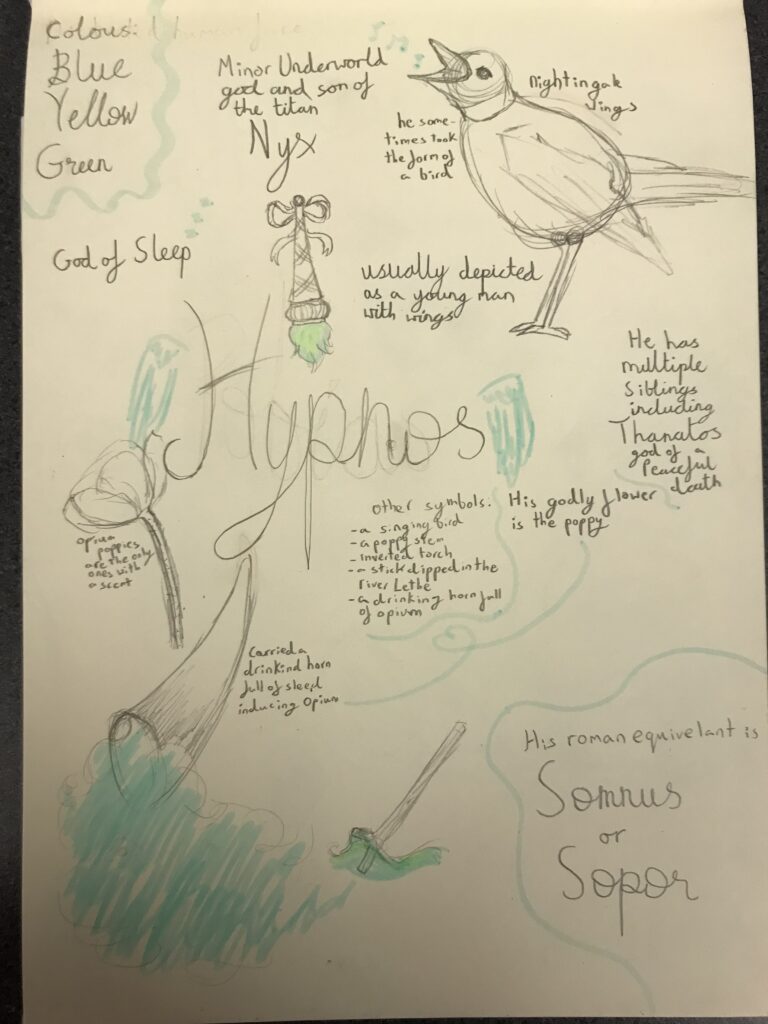 Colours:
Blue
Yellow
Green
Minor Underworld
god and son of
the titan
Nyx
he some-
times took
the form of
a bird
Nightingale
sings
God of Sleep
usually depicted
as a young man
with wings
He has
multiple
siblings
including
Thanatos
god of a
Peaceful
death
Hyphos
Opium
poppies
are the only
ones with
a scent
other symbols:
-a singing bird
-a poppy stem
-inverted torch
-a stick dipped in the
river Lethe
-a drinking horn full
of opium
His godly flower
is the poppy
Carried a
drinkind horn
full of sleep
inducing Opium
His roman equivelant is
Somnus
or
Sopor